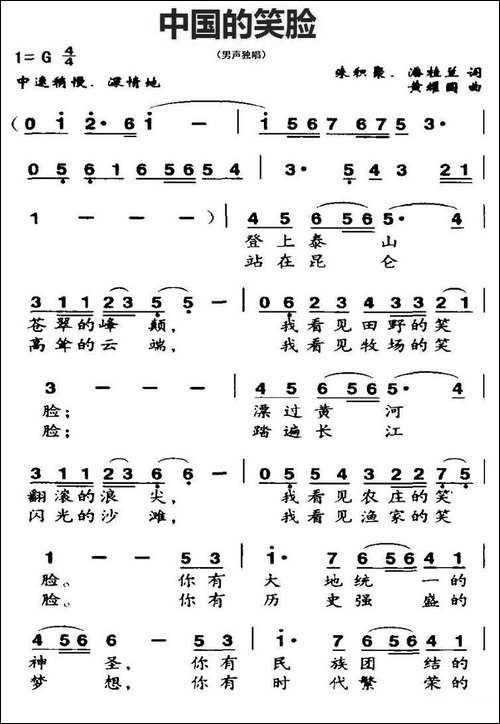 中国的笑脸
1=G 4/4
（男声独唱）
朱积聚、潘桂兰 词
中速稍慢、深情地
黄耀国 曲
(0 i 2· 6 i - | i 5 6 7 6 7 5 3· |
0 5 6 1 6 5 6 5 4 | 3· 5 4 3 2 1 |
1 - - - ) | 4 5 6 5 6 5· 4 |
登上泰山
站在昆仑
3 1 1 2 3 5 5 - | 0 6 2 3 4 3 3 2 1 |
苍翠的峰巅， 我看见田野的笑
高耸的云端， 我看见牧场的笑
3 - - - | 4 5 6 5 6 5· 4 |
脸； 漂过黄河
脸； 踏遍长江
3 1 1 2 3 6 6 - | 0 5 4 3 2 2 2 7 5 |
翻滚的浪尖， 我看见农庄的笑
闪光的沙滩， 我看见渔家的笑
1 - - 5 3 | i· 7 6 5 6 4 1 |
脸。 你有大地统一的
脸。 你有历史强盛的
4 5 6 6 - 5 3 | i· 7 6 5 6 5 1 |
神圣，你有民族团结的
梦想，你有时代繁荣的